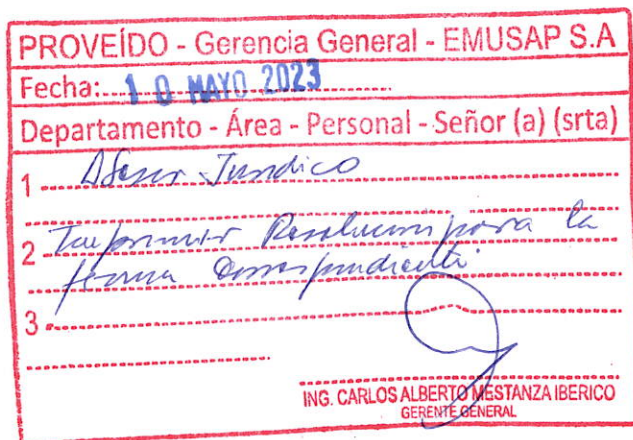 PROVEÍDO - Gerencia General - EMUSAP S.A
Fecha: 10 MAYO 2023
Departamento - Área - Personal - Señor (a) (srta)
1 Asesor Jurídico
2 Imprimir Resolucion para la
firma correspondiente.
3
ING. CARLOS ALBERTO MESTANZA IBERICO
GERENTE GENERAL